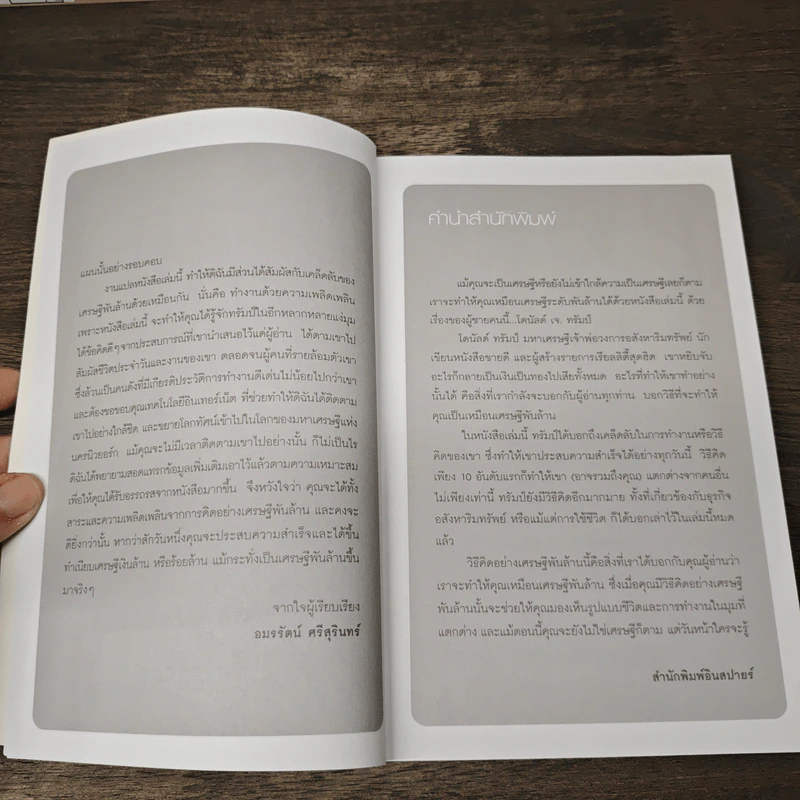 แผนนั้นอย่างรอบคอบ
งานแปลหนังสือเล่มนี้ ทำให้ดิฉันมีส่วนได้สัมผัสกับเคล็ดลับของ
เศรษฐีพันล้านด้วยเหมือนกัน นั่นคือ ทำงานด้วยความเพลิดเพลิน
เพราะหนังสือเล่มนี้ จะทำให้คุณได้รู้จักทรัมป์ในอีกหลากหลายแง่มุม
ได้ข้อคิดดีๆจากประสบการณ์ที่เขานำเสนอไว้แด่ผู้อ่าน ได้ตามเขาไป
สัมผัสชีวิตประจำวันและงานของเขา ตลอดจนผู้คนที่รายล้อมตัวเขา
ซึ่งล้วนเป็นคนดังที่มีเกียรติประวัติการทำงานดีเด่นไม่น้อยไปกว่าเขา
และต้องขอขอบคุณเทคโนโลยีอินเทอร์เน็ต ที่ช่วยทำให้ดิฉันได้ติดตาม
เขาไปอย่างใกล้ชิด และขยายโลกทัศน์เข้าไปในโลกของมหาเศรษฐีแห่ง
นครนิวยอร์ก แม้คุณจะไม่มีเวลาติดตามเขาไปอย่างนั้น ก็ไม่เป็นไร
ดิฉันได้พยายามสอดแทรกข้อมูลเพิ่มเติมเอาไว้แล้วตามความเหมาะสม
เพื่อให้คุณได้รับอรรถรสจากหนังสือมากขึ้น จึงหวังใจว่า คุณจะได้ทั้ง
สาระและความเพลิดเพลินจากการคิดอย่างเศรษฐีพันล้าน และคงจะ
ดียิ่งกว่านั้น หากว่าสักวันหนึ่งคุณจะประสบความสำเร็จและได้ขึ้น
ทำเนียบเศรษฐีเงินล้าน หรือร้อยล้าน แม้กระทั่งเป็นเศรษฐีพันล้านขึ้น
มาจริงๆ
จากใจผู้เรียบเรียง
อมรรัตน์ ศรีสุรินทร์
คำนำสำนักพิมพ์
แม้คุณจะเป็นเศรษฐีหรือยังไม่เข้าใกล้ความเป็นเศรษฐีเลยก็ตาม
เราจะทำให้คุณเหมือนเศรษฐีระดับพันล้านได้ด้วยหนังสือเล่มนี้ ด้วย
เรื่องของผู้ชายคนนี้...โดนัลด์ เจ. ทรัมป์
โดนัลด์ ทรัมป์ มหาเศรษฐีเจ้าพ่อวงการอสังหาริมทรัพย์ นัก
เขียนหนังสือขายดี และผู้สร้างรายการเรียลลิตี้สุดฮิต เขาหยิบจับ
อะไรก็กลายเป็นเงินเป็นทองไปเสียทั้งหมด อะไรที่ทำให้เขาทำอย่าง
นั้นได้ คือสิ่งที่เรากำลังจะบอกกับผู้อ่านทุกท่าน บอกวิธีที่จะทำให้
คุณเป็นเหมือนเศรษฐีพันล้าน
ในหนังสือเล่มนี้ ทรัมป์ได้บอกถึงเคล็ดลับในการทำงานหรือวิธี
คิดของเขา ซึ่งทำให้เขาประสบความสำเร็จได้อย่างทุกวันนี้ วิธีคิด
เพียง 10 อันดับแรกก็ทำให้เขา (อาจรวมถึงคุณ) แตกต่างจากคนอื่น
ไม่เพียงเท่านี้ ทรัมป์ยังมีวิธีคิดอีกมากมาย ทั้งที่เกี่ยวข้องกับธุรกิจ
อสังหาริมทรัพย์ หรือแม้แต่การใช้ชีวิต ก็ได้บอกเล่าไว้ในเล่มนี้หมด
แล้ว
วิธีคิดอย่างเศรษฐีพันล้านนี้คือสิ่งที่เราได้บอกกับคุณผู้อ่านว่า
เราจะทำให้คุณเหมือนเศรษฐีพันล้าน ซึ่งเมื่อคุณมีวิธีคิดอย่างเศรษฐี
พันล้านนั้นจะช่วยให้คุณมองเห็นรูปแบบชีวิตและการทำงานในมุมที่
แตกต่าง และแม้ตอนนี้คุณจะยังไม่ใช่เศรษฐีก็ตาม แต่วันหน้าใครจะรู้
สำนักพิมพ์อินสปายร์